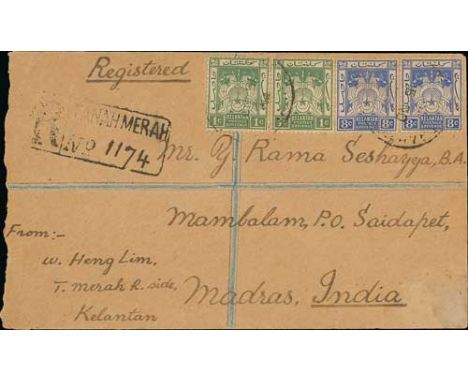 Registered
KELANTAN
1c 1c
KELANTAN
1c 1c
KELANTAN
8c 8c
KELANTAN
8c 8c
TANAH MERAH
No 1174
Mr. Y. Rama Seshayya, B.A.
Mambalam, P.O. Saidapet,
Madras, India
From:-
W. Heng Lim,
T. merah R. side,
Kelantan